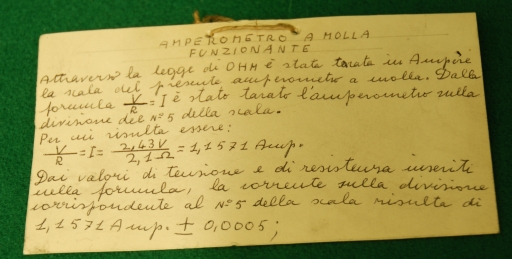 AMPEROMETRO A MOLLA
FUNZIONANTE
Attraverso la legge di OHM è stata tarata in Ampère
la scala del presente amperometro a molla. Dalla
formula V/R = I è stato tarato l'amperometro sulla
divisione del N° 5 della scala.
Per cui risulta essere:
V/R = I = 2,43V/2,1Ω = 1,1571 Amp.
Dai valori di tensione e di resistenza inseriti
nella formula, la corrente sulla divisione
corrispondente al N° 5 della scala risulta di
1,1571 Amp. ± 0,0005;